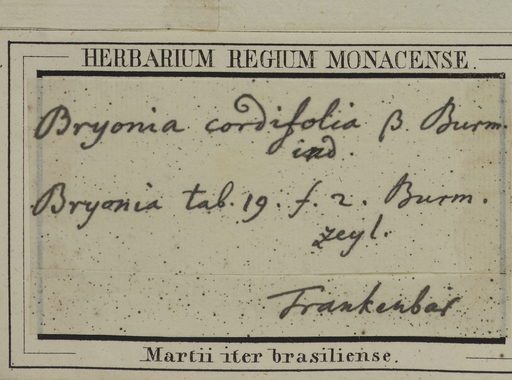 HERBARIUM REGIUM MONACENSE.
Bryonia cordifolia β. Burm.
ind.
Bryonia tab. 19. f. 2. Burm.
zeyl.
Frankenbar
Martii iter brasiliense.